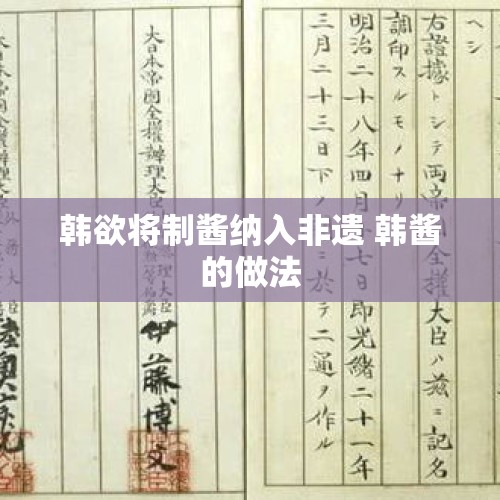 韩欲将制酱纳入非遗 韩酱
的做法
ヘシ
右證據トシテ両帝 全權大臣ハ茲ニ記名
調印スルモノナリ
明治二十八年四月 七日即光緒二十一年
三月二十三日下ノ ニ於テ二通ヲ作ル
大日本帝國全權辦理大臣
伊藤博文
大日本帝國全權辦理大臣
陸奥宗光